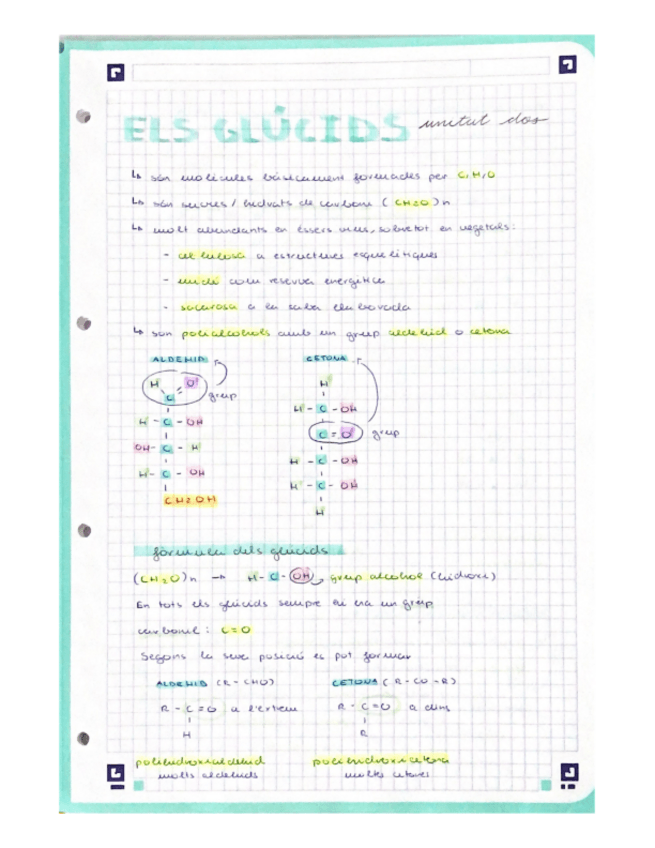 ELS GLÚCIDS unitat dos
↳ són molècules bàsicament formades per C, H, O
↳ són sucres / hidrats de carboni (CH2O)n
↳ molt abundants en éssers vius, sobretot en vegetals:
- cel·lulosa a estructures esquelètiques
- midó com reserva energètica
- sacarosa a la saba elaborada
↳ són polialcohols amb un grup aldehid o cetona
ALDEHID CETONA
H O H
C grup H - C - OH
H - C - OH C = O grup
OH - C - H H - C - OH
H - C - OH H - C - OH
CH2OH H
fórmula dels glúcids
(CH2O)n → H - C - OH grup alcohol (hidroxi)
En tots els glúcids sempre hi ha un grup
carbonil: C=O
Segons la seva posició es pot formar
ALDEHID (R - CHO) CETONA (R - CO - R)
R - C = O a l'extrem R - C = O a dins
H R
polihidroxialdehid polihidroxicetona
molts aldehids moltes cetones